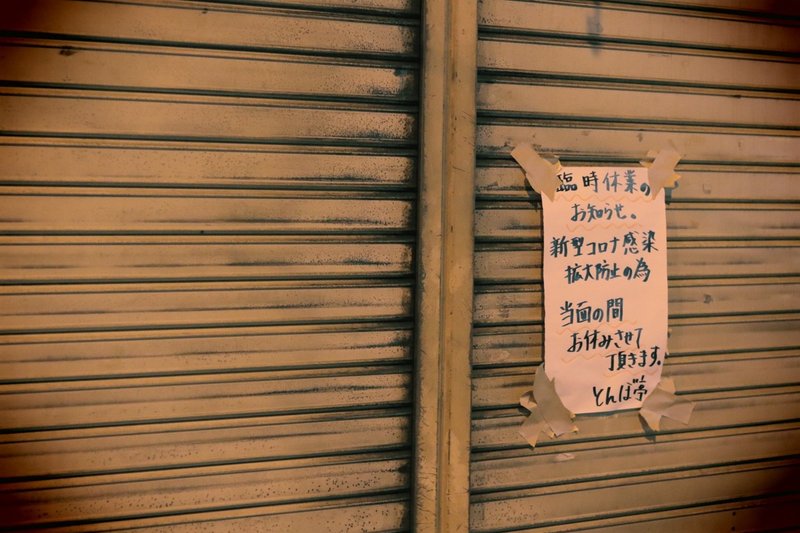 臨時休業の
お知らせ。
新型コロナ感染
拡大防止の為
当面の間
お休みさせて
頂きます。
とんぼ亭